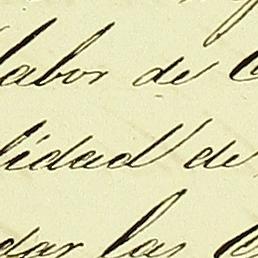 labor de
lidad de
dar las